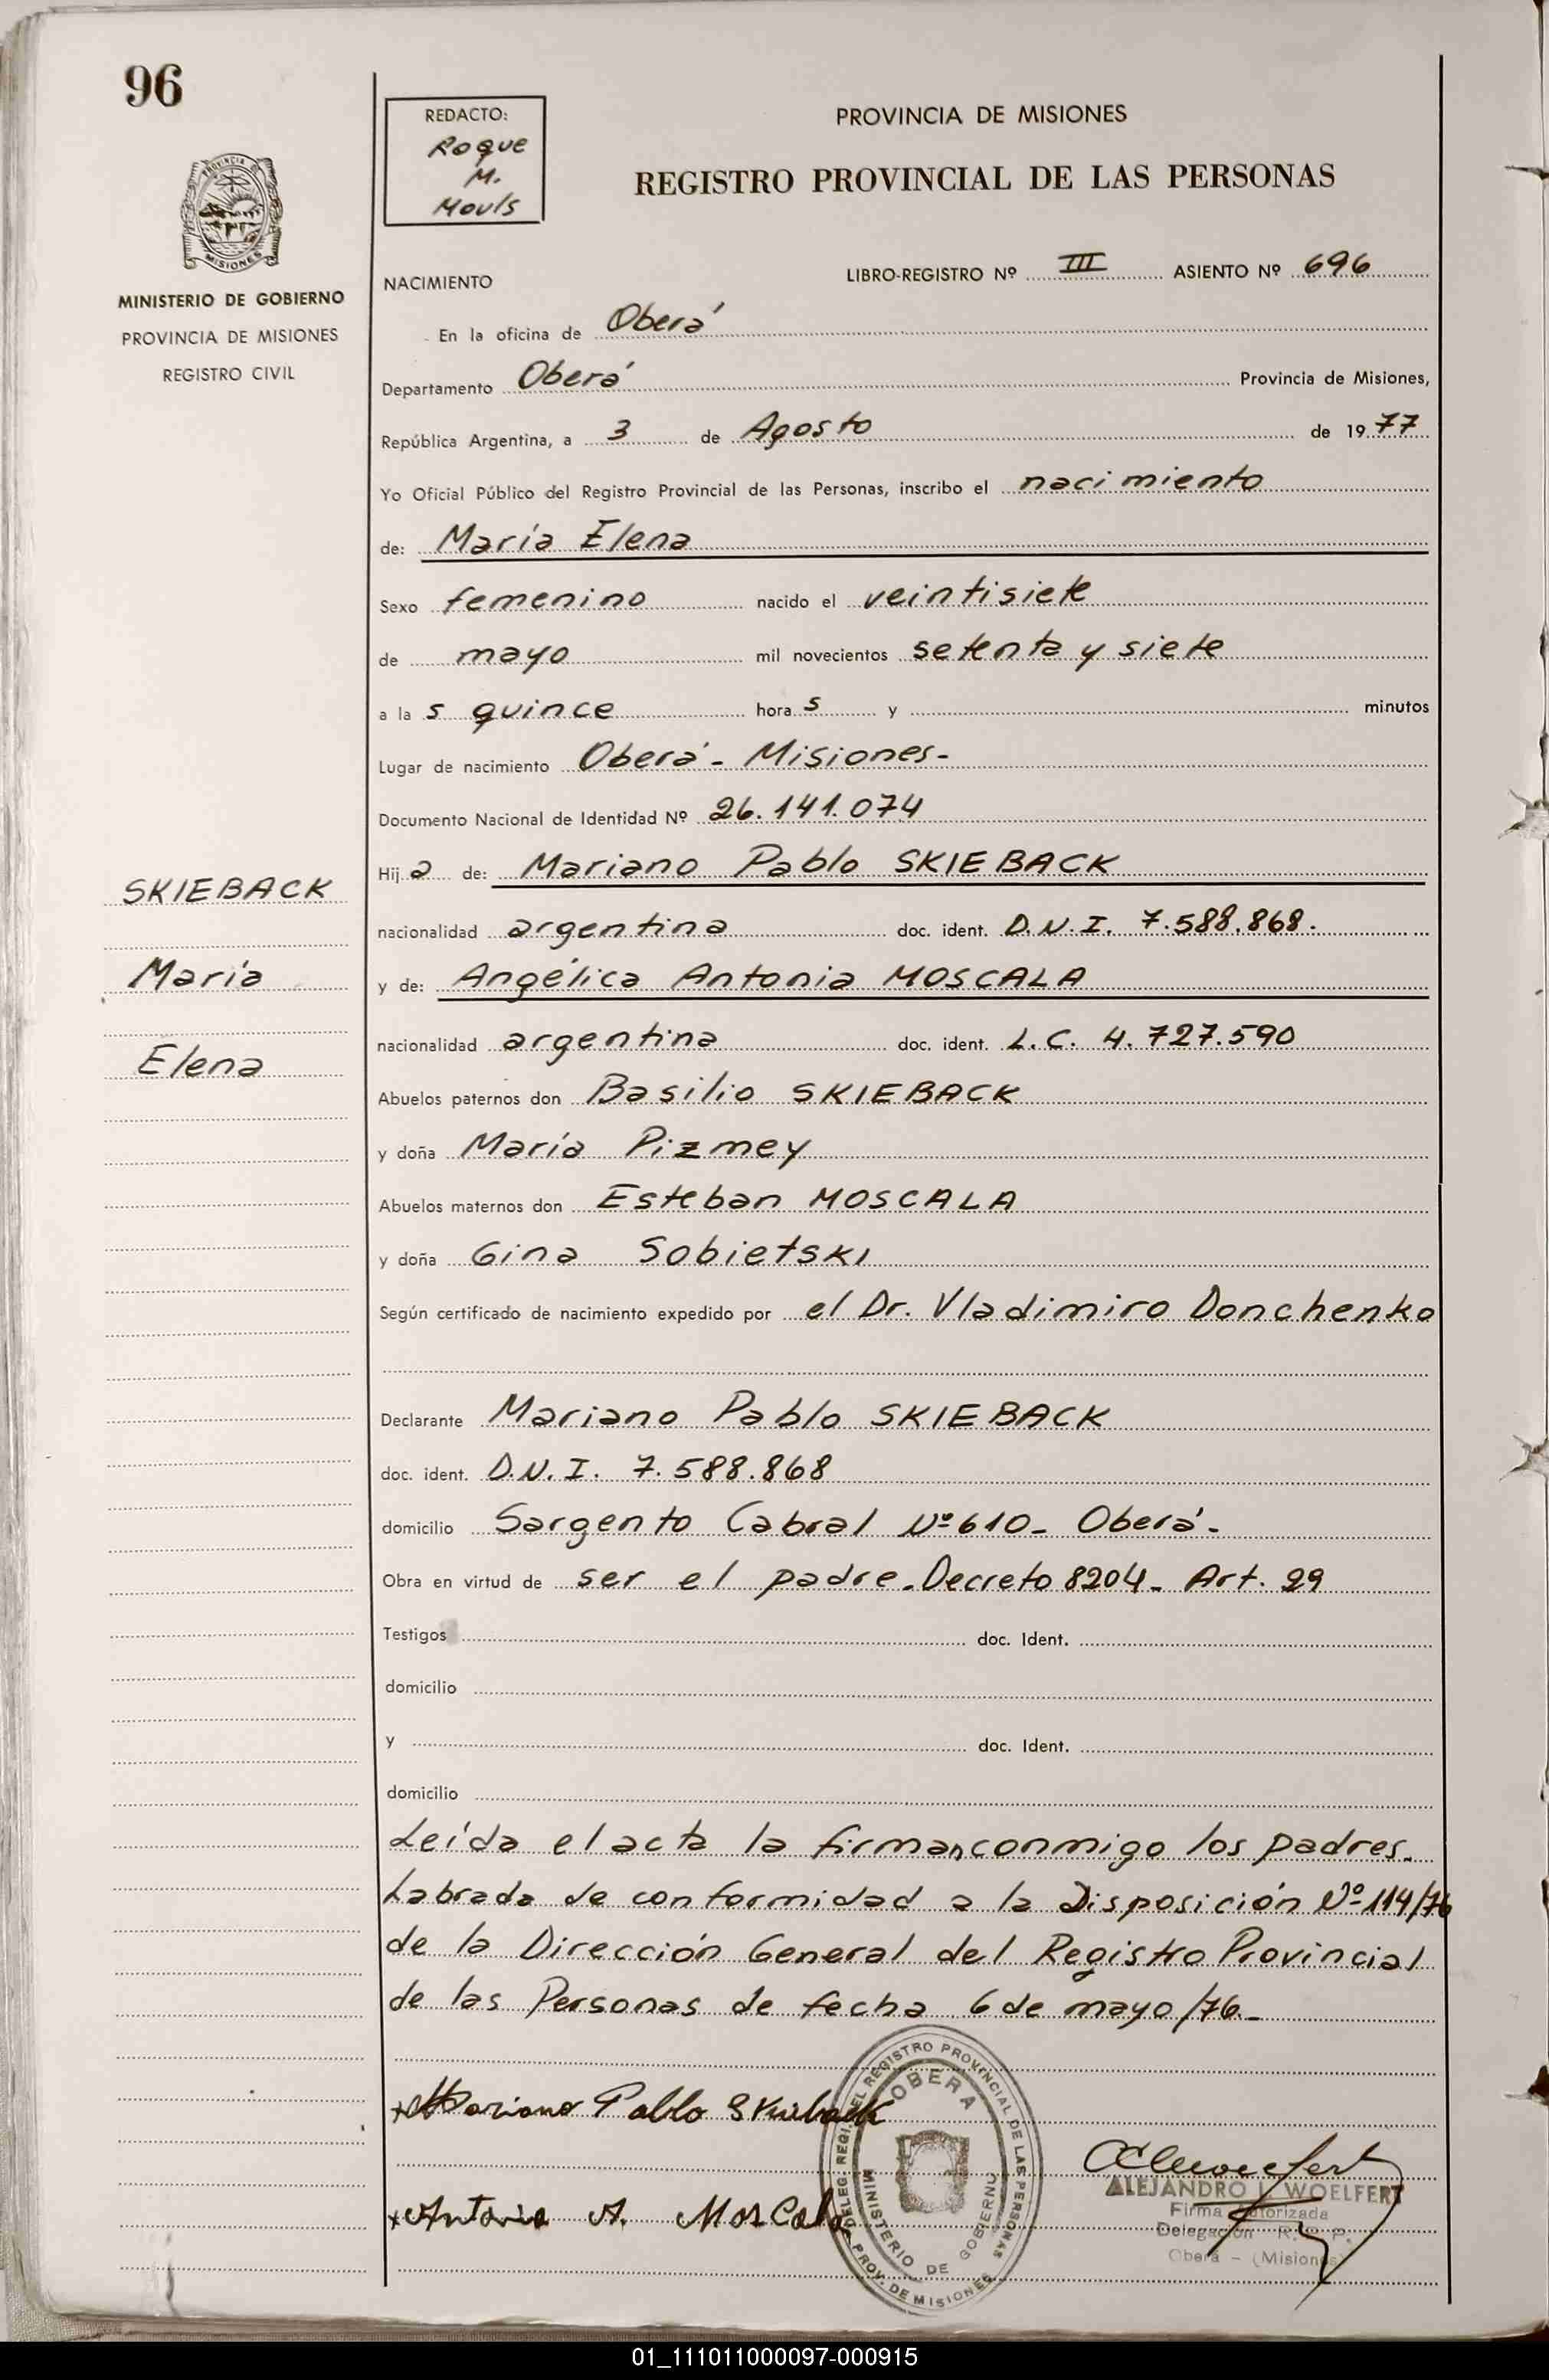 96
REDACTO:
Roque
M.
Mouls
PROVINCIA DE MISIONES
REGISTRO PROVINCIAL DE LAS PERSONAS
PROVINCIA DE
MISIONES
MINISTERIO DE GOBIERNO
PROVINCIA DE MISIONES
REGISTRO CIVIL
NACIMIENTO
LIBRO-REGISTRO Nº III ASIENTO Nº 696
En la oficina de Oberá
Departamento Oberá Provincia de Misiones,
República Argentina, a 3 de Agosto de 1977
Yo Oficial Público del Registro Provincial de las Personas, inscribo el nacimiento
de: María Elena
Sexo femenino nacido el veintisiete
de mayo mil novecientos setenta y siete
a la s quince hora s y minutos
Lugar de nacimiento Oberá - Misiones-
Documento Nacional de Identidad Nº 26.141.074
Hij a de: Mariano Pablo SKIEBACK
SKIEBACK
nacionalidad argentina doc. ident. D.N.I. 7.588.868.
María
y de: Angélica Antonia MOSCALA
nacionalidad argentina doc. ident. L.C. 4.727.590
Elena
Abuelos paternos don Basilio SKIEBACK
y doña María Pizmey
Abuelos maternos don Esteban MOSCALA
y doña Gina Sobietski
Según certificado de nacimiento expedido por el Dr. Vladimiro Donchenko
Declarante Mariano Pablo SKIEBACK
doc. ident. D.N.I. 7.588.868
domicilio Sargento Cabral Nº 610- Oberá-
Obra en virtud de ser el padre. Decreto 8204- Art. 29
Testigos doc. Ident.
domicilio
y doc. Ident.
domicilio
Leída el acta la firman conmigo los padres.
Labrada de conformidad a la Disposición Nº 114/76
de la Dirección General del Registro Provincial
de las Personas de fecha 6 de mayo/76.-
Mariano Pablo Skieback
Antonia A. Moscala
DELEG. REG. DEL REGISTRO PROVINCIAL DE LAS PERSONAS
OBERA
MINISTERIO DE GOBIERNO
PROV. DE MISIONES
ALEJANDRO L. WOELFERT
Firma Autorizada
Delegación R. P. P.
Oberá - (Misiones)
01_111011000097-000915